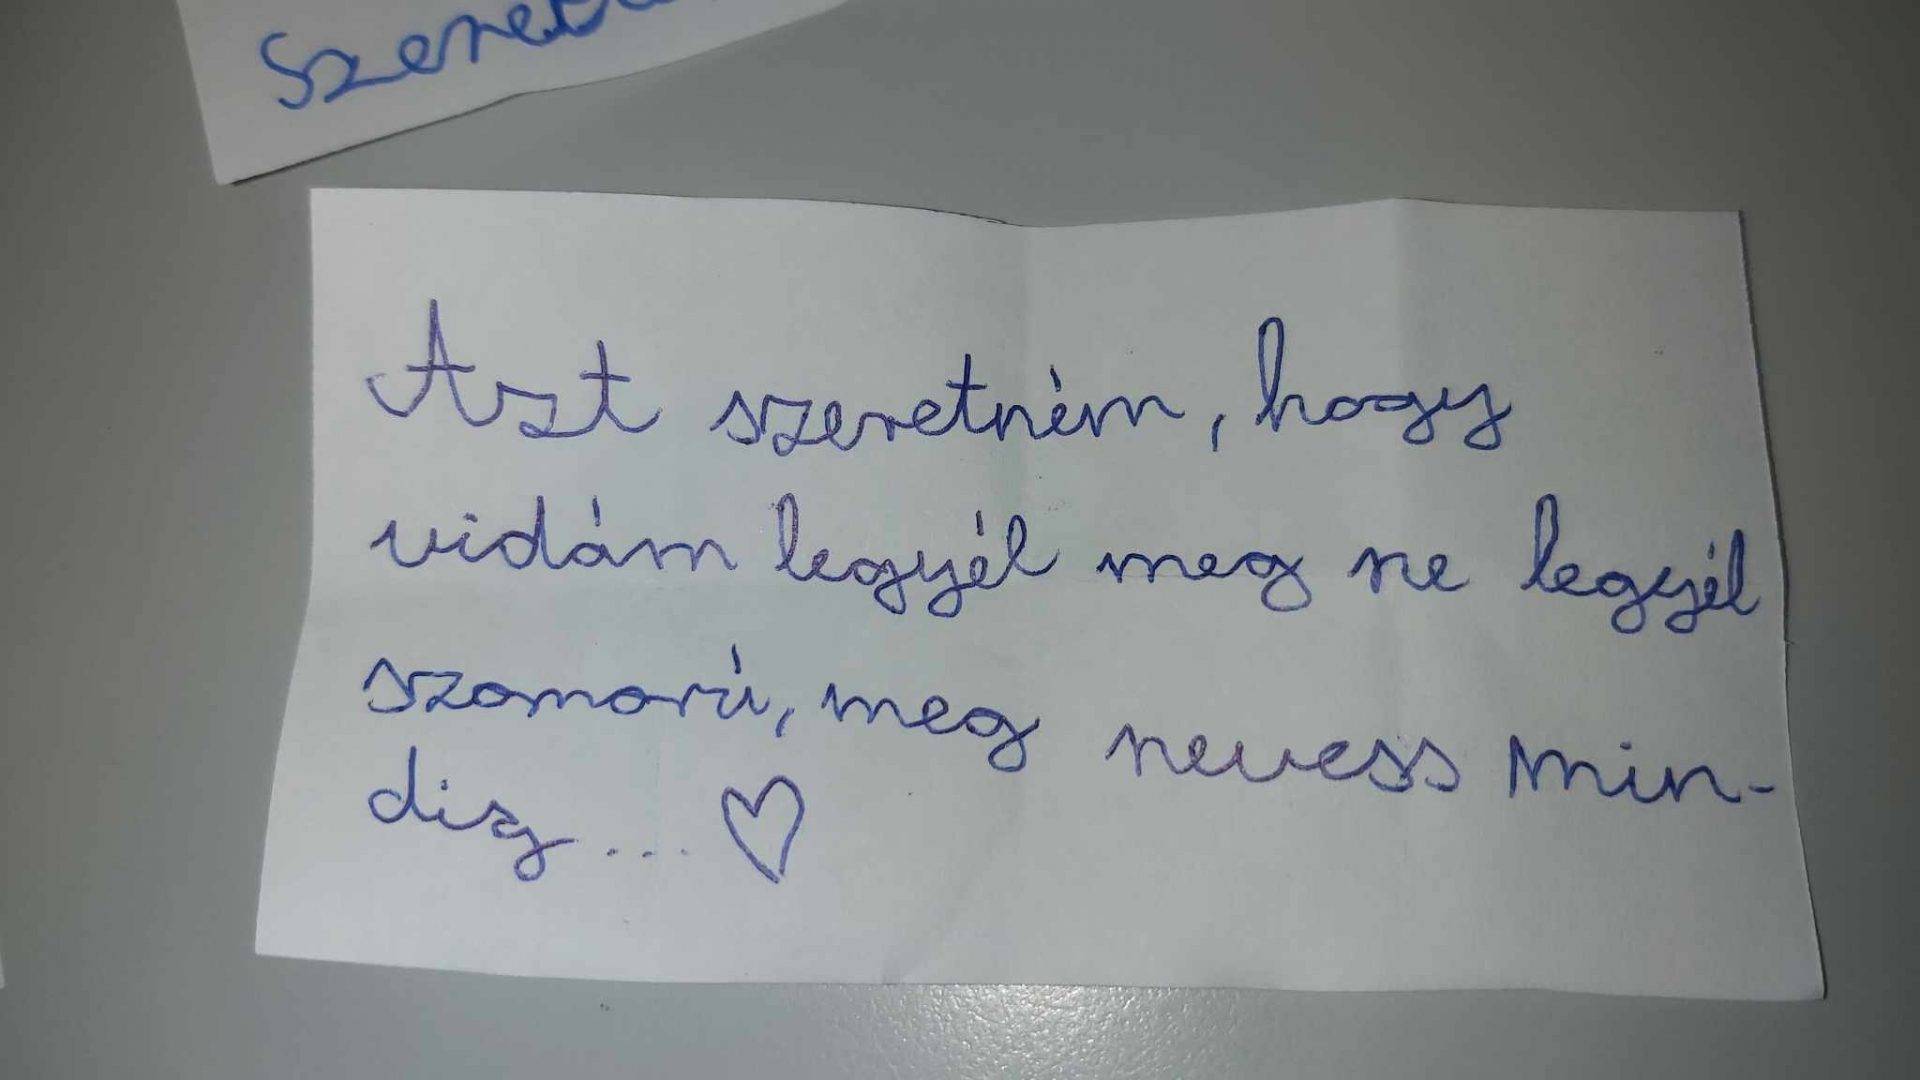 Azt szeretném, hogy
vidám legyél meg ne legyél
szomorú, meg nevess min-
dig... ♡